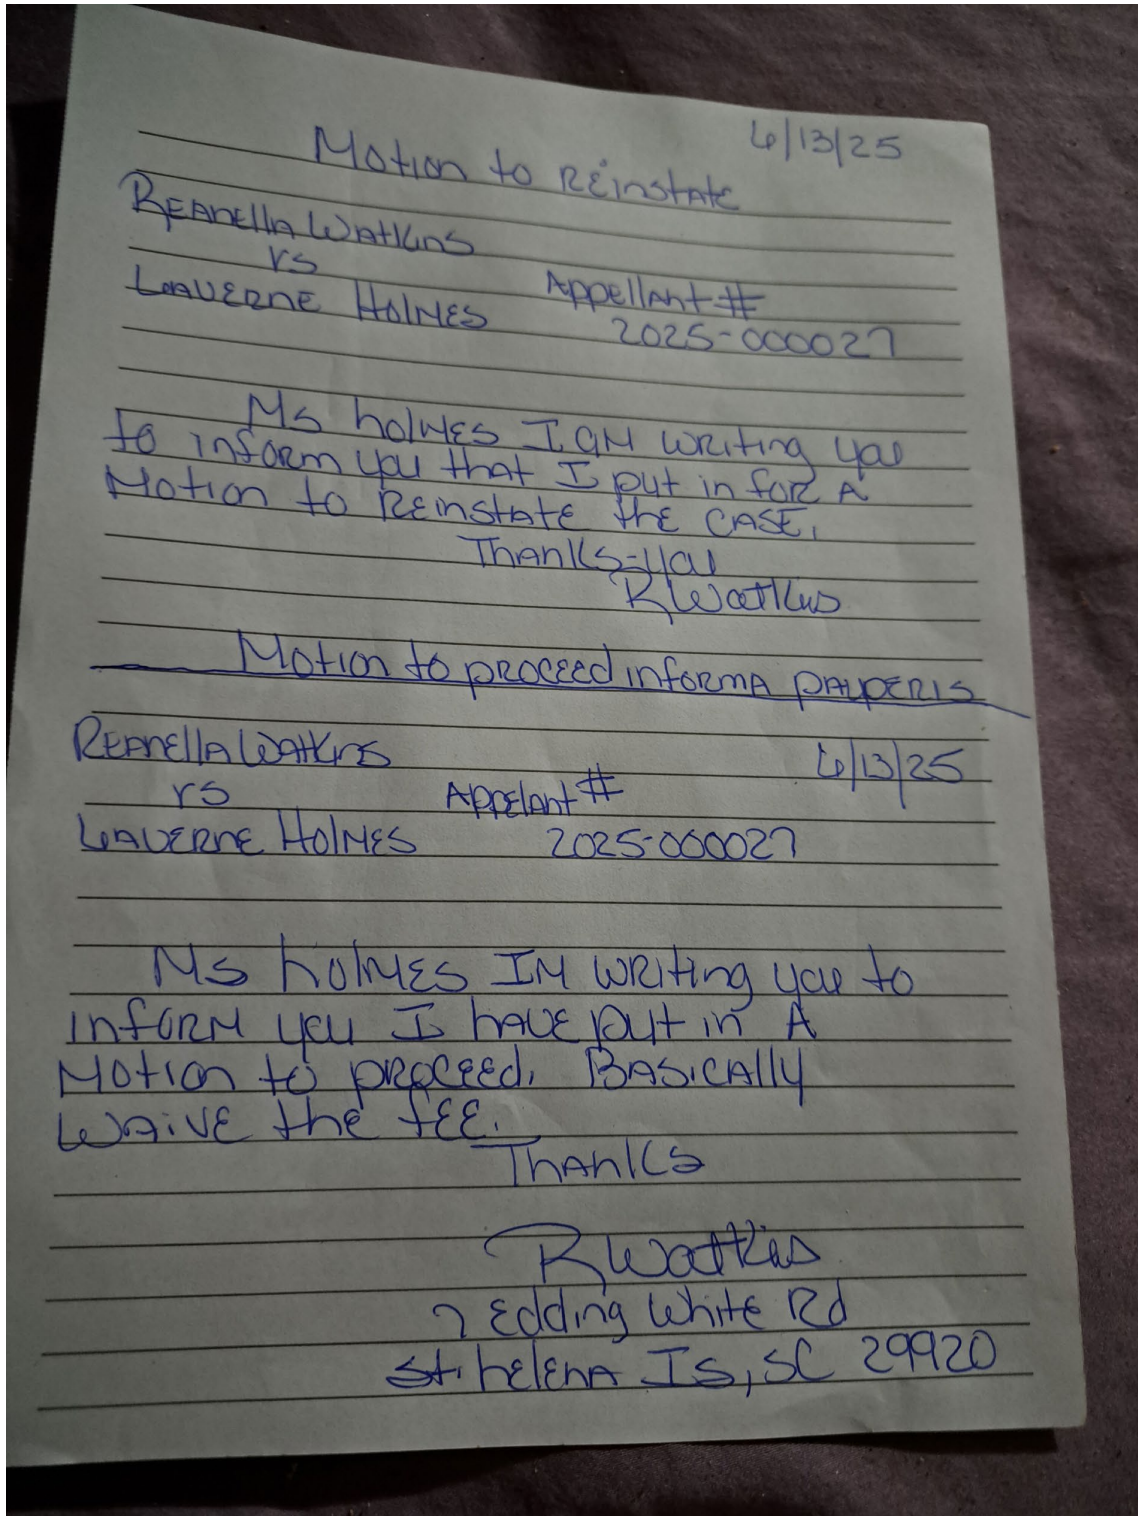 6/13/25
Motion to Reinstate
Reanella Watkins
vs
Laverne Holmes Appellant #
2025-000027
Ms holmes I am writing you
to inform you that I put in for A
Motion to Reinstate the CASE.
Thanks-you
R Watkins
Motion to proceed informa pauperis
Reanella Watkins 6/13/25
vs Appelant #
Laverne Holmes 2025-000027
Ms holmes IM writing you to
inform you I have put in A
Motion to proceed. Basically
waive the fee.
Thanks
R Watkins
7 Edding White Rd
St. helena Is, SC 29920